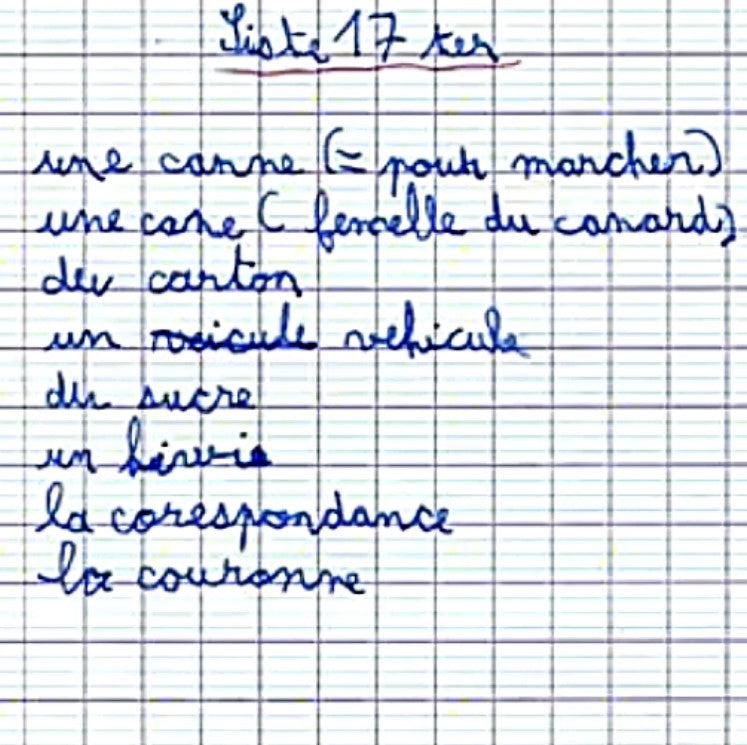 Liste 17 ter
une canne (= pour marcher)
une cane ( femelle du canard)
du carton
un vehicule
du sucre
un
la corespondance
la couronne